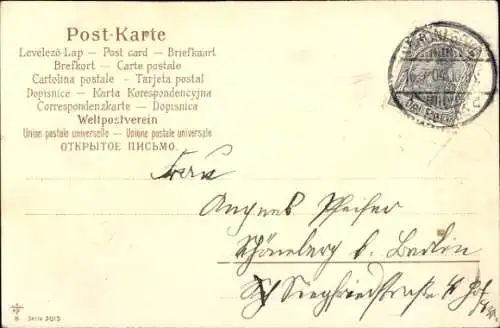 Post-Karte
Levelező-Lap — Post card — Briefkaart
Brefkort — Carte postale
Cartolina postale — Tarjeta postal
Dopisnice — Karta Korespondencyjna
Correspondenzkarte — Dopisnica
Weltpostverein
Union postale universelle — Unione postale universale
ОТКРЫТОЕ ПИСЬМО.
Frau
Pfeifer
Schöneberg b. Berlin
Siegfriedstraße
Serie